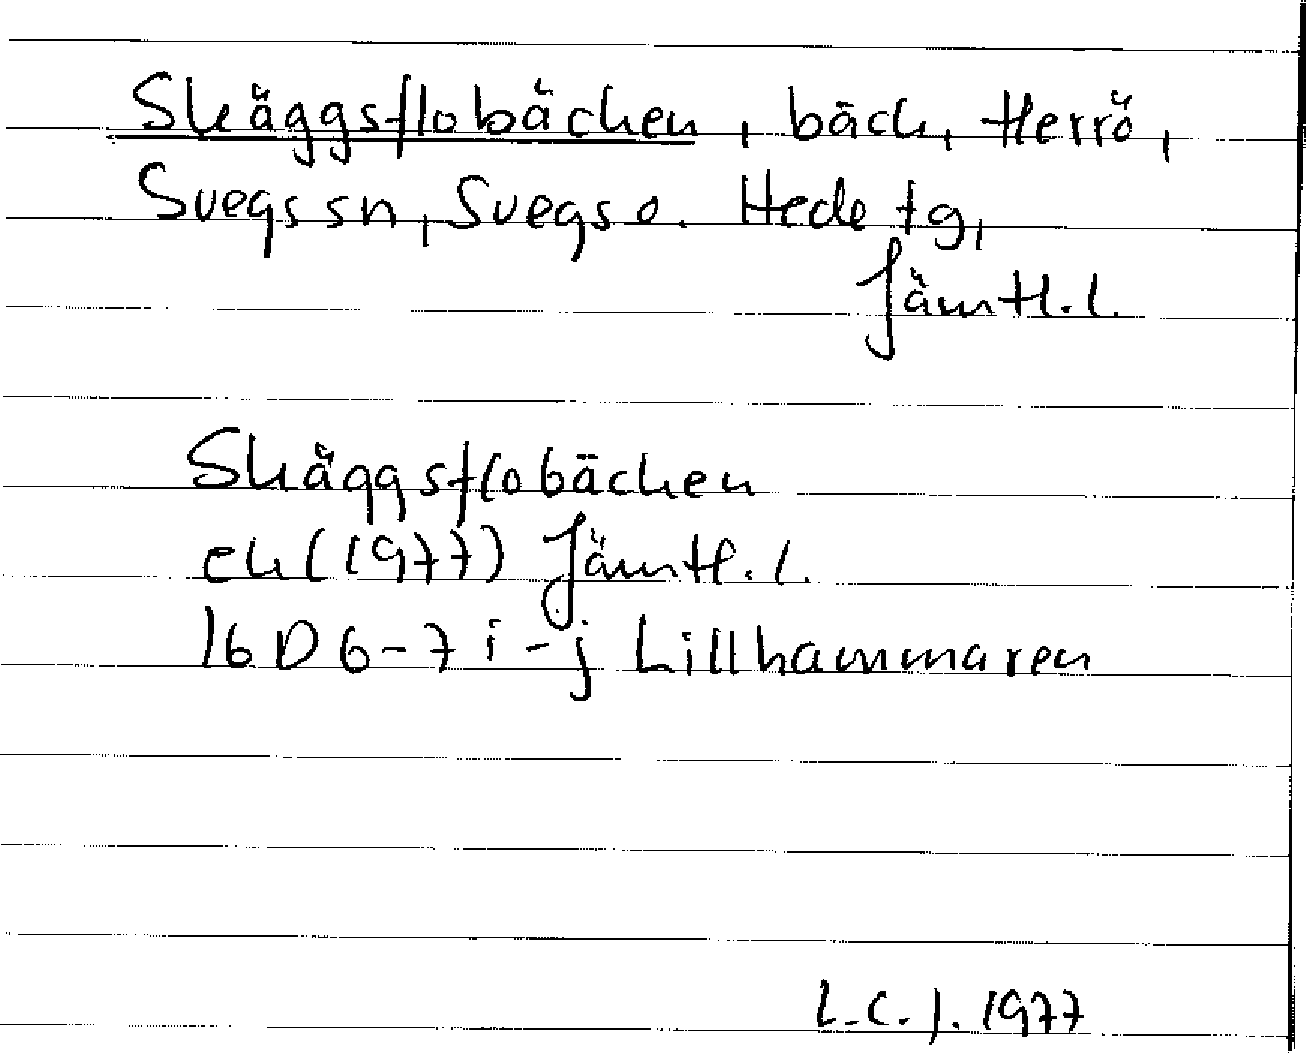 Skäggsflobäcken, bäck, Herrö,
Svegs sn, Svegs o. Hede tg,
Jämtl. l.
Skäggsflobäcken
ek (1977) Jämtl. l.
16D 6-7 i-j Lillhammaren
L-C. J. 1977